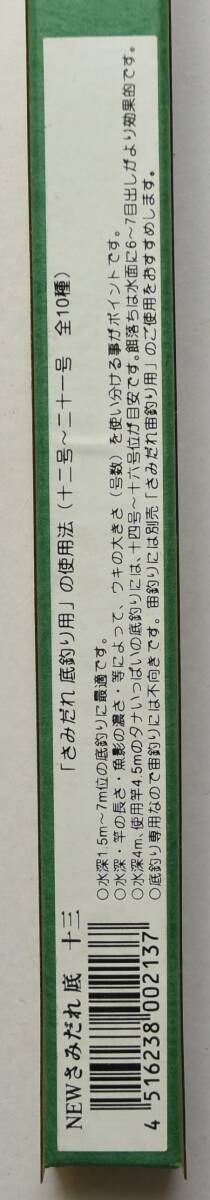 「さみだれ 底釣り用」の使用法（十二号～二十一号　全10種）
○水深1.5m～7m位の底釣りに最適です。
○水深・竿の長さ・魚影の濃さ・等によって、ウキの大きさ（号数）を使い分ける事がポイントです。
○水深4m、使用竿4.5mのタナいっぱいの底釣りには、十四号～十六号位が目安です。餌落ちは水面に6～7目出しがより効果的です。
○底釣り専用なので宙釣りには不向きです。宙釣りには別売「さみだれ宙釣り用」のご使用をおすすめします。
NEWさみだれ 底　十三
4 516238 002137